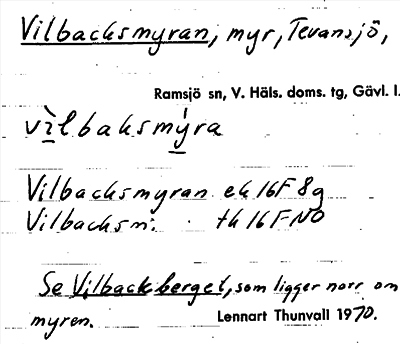 Vilbacksmyran, myr, Tevansjö,
Ramsjö sn, V. Häls. doms. tg, Gävl. l.
vìlbaksmýra
Vilbacksmyran ek 16F 8g
Vilbacksm. tk 16F NO
Se Vilbackberget, som ligger norr om
myren.
Lennart Thunvall 1970.